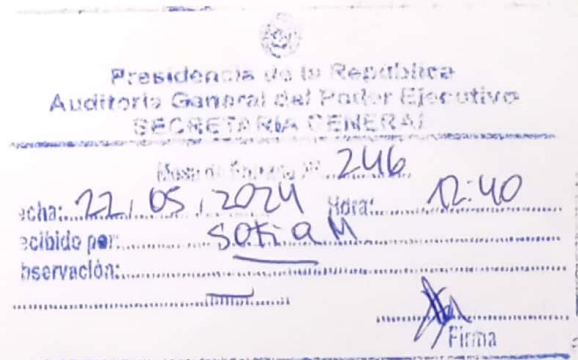 Presidencia de la República
Auditoría General del Poder Ejecutivo
SECRETARIA GENERAL
Mesa de Entrada Nº 246
echa: 22 / 05 / 2024 Hora: 12:40
ecibido por: Sofia M
bservación:
Firma